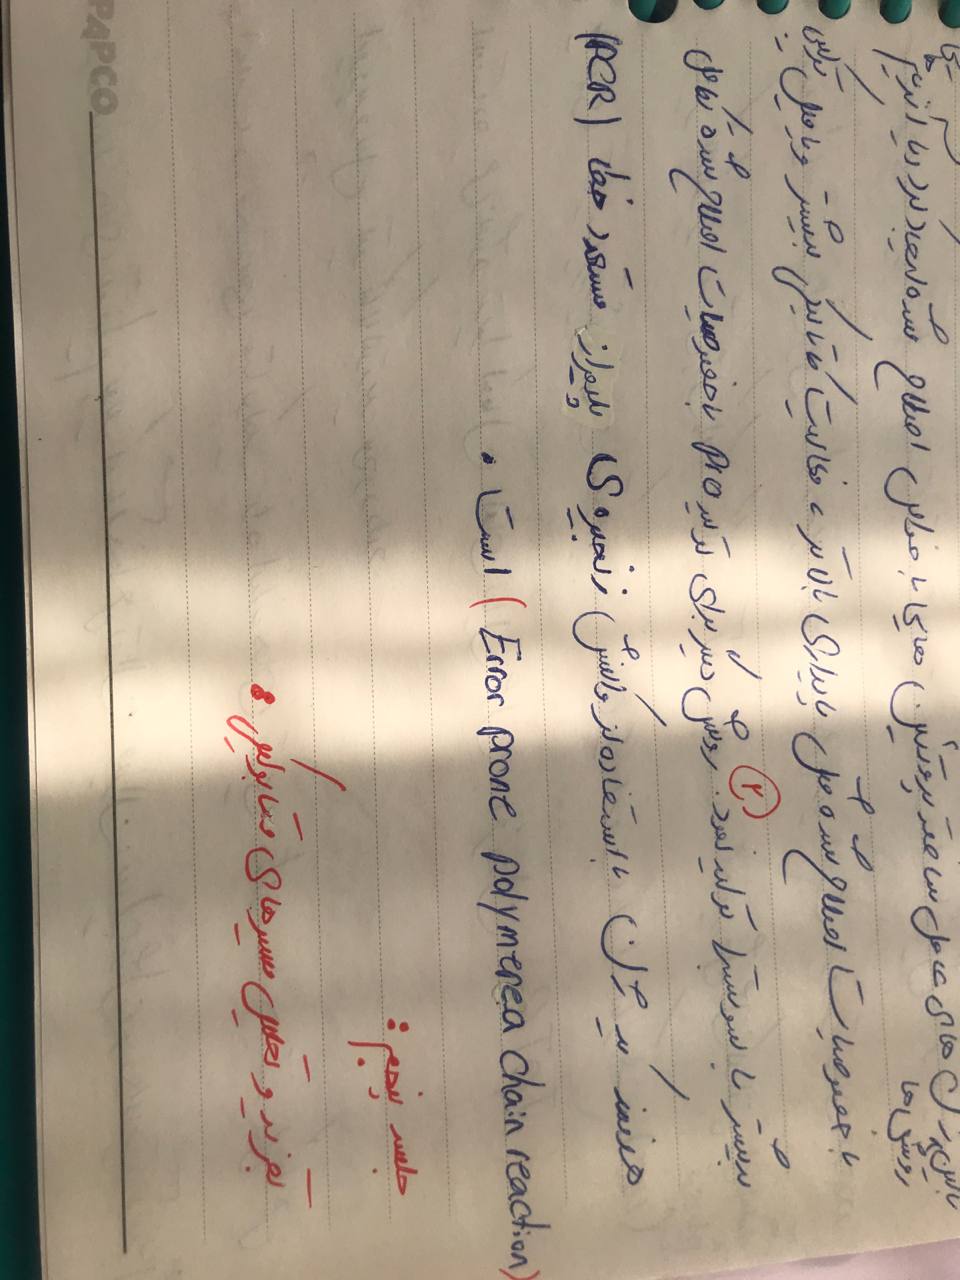 ژن های عامل ساخت پروتئین هایی با خواص اصلاح شده ایجاد کرد و یا آنزیم
روش ها
با خصوصیات اصلاح شده مثل پایداری بالاتر ، فعالیت کاتالیکی بیشتر و یا میل ترکیبی
بیشتر با سوبسترا تولید نمود. ۲ روش دیگر برای تولید pro با خصوصیات اصلاح شده تکامل
هدفمند یک ژن با استفاده از واکنش زنجیره ی پلیمراز مستعد خطا (PCR)
(Error prone polymerea chain reaction) است .
جلسه پنجم :
تجزیه و تحلیل مسیرهای متابولیکی :
PAPCO